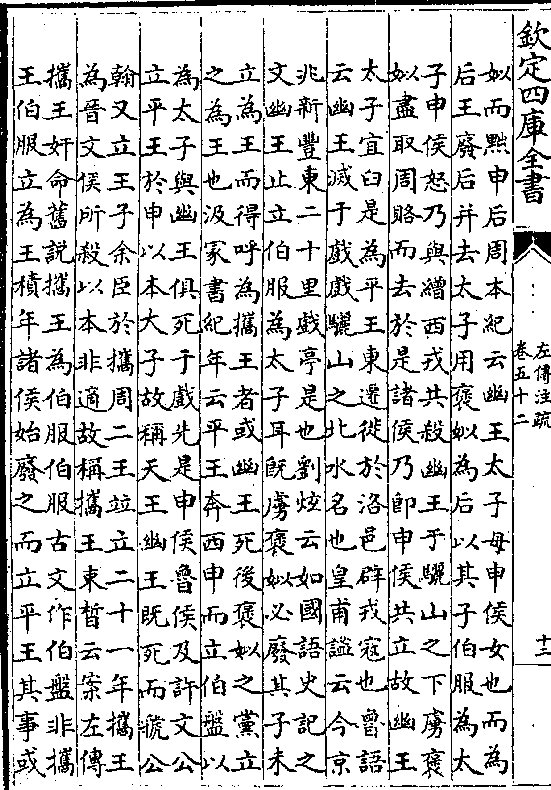 欽定四庫全書
左傳注疏
卷五十二
十二
姒而黜申后周本紀云幽王太子母申侯女也而為
后王廢后并去太子用褒姒為后以其子伯服為太
子申侯怒乃與繒西戎共殺幽王于驪山之下虜褒
姒盡取周賂而去於是諸侯乃即申侯共立故幽王
太子宜臼是為平王東遷徙於洛邑辟戎寇也魯語
云幽王滅于戲戲驪山之北水名也皇甫謐云今京
兆新豐東二十里戲亭是也劉炫云如國語史記之
文幽王止立伯服為太子耳既虜褒姒必廢其子未
立為王而得呼為攜王者或幽王死後褒姒之黨立
之為王也汲冢書紀年云平王奔西申而立伯盤以
為太子與幽王俱死于戲先是申侯魯侯及許文公
立平王於申以本大子故稱天王幽王既死而虢公
翰又立王子余臣於攜周二王竝立二十一年攜王
為晉文侯所殺以本非適故稱攜王東晳云案左傳
攜王奸命舊說攜王為伯服伯服古文作伯盤非攜
王伯服立為王積年諸侯始廢之而立平王其事或